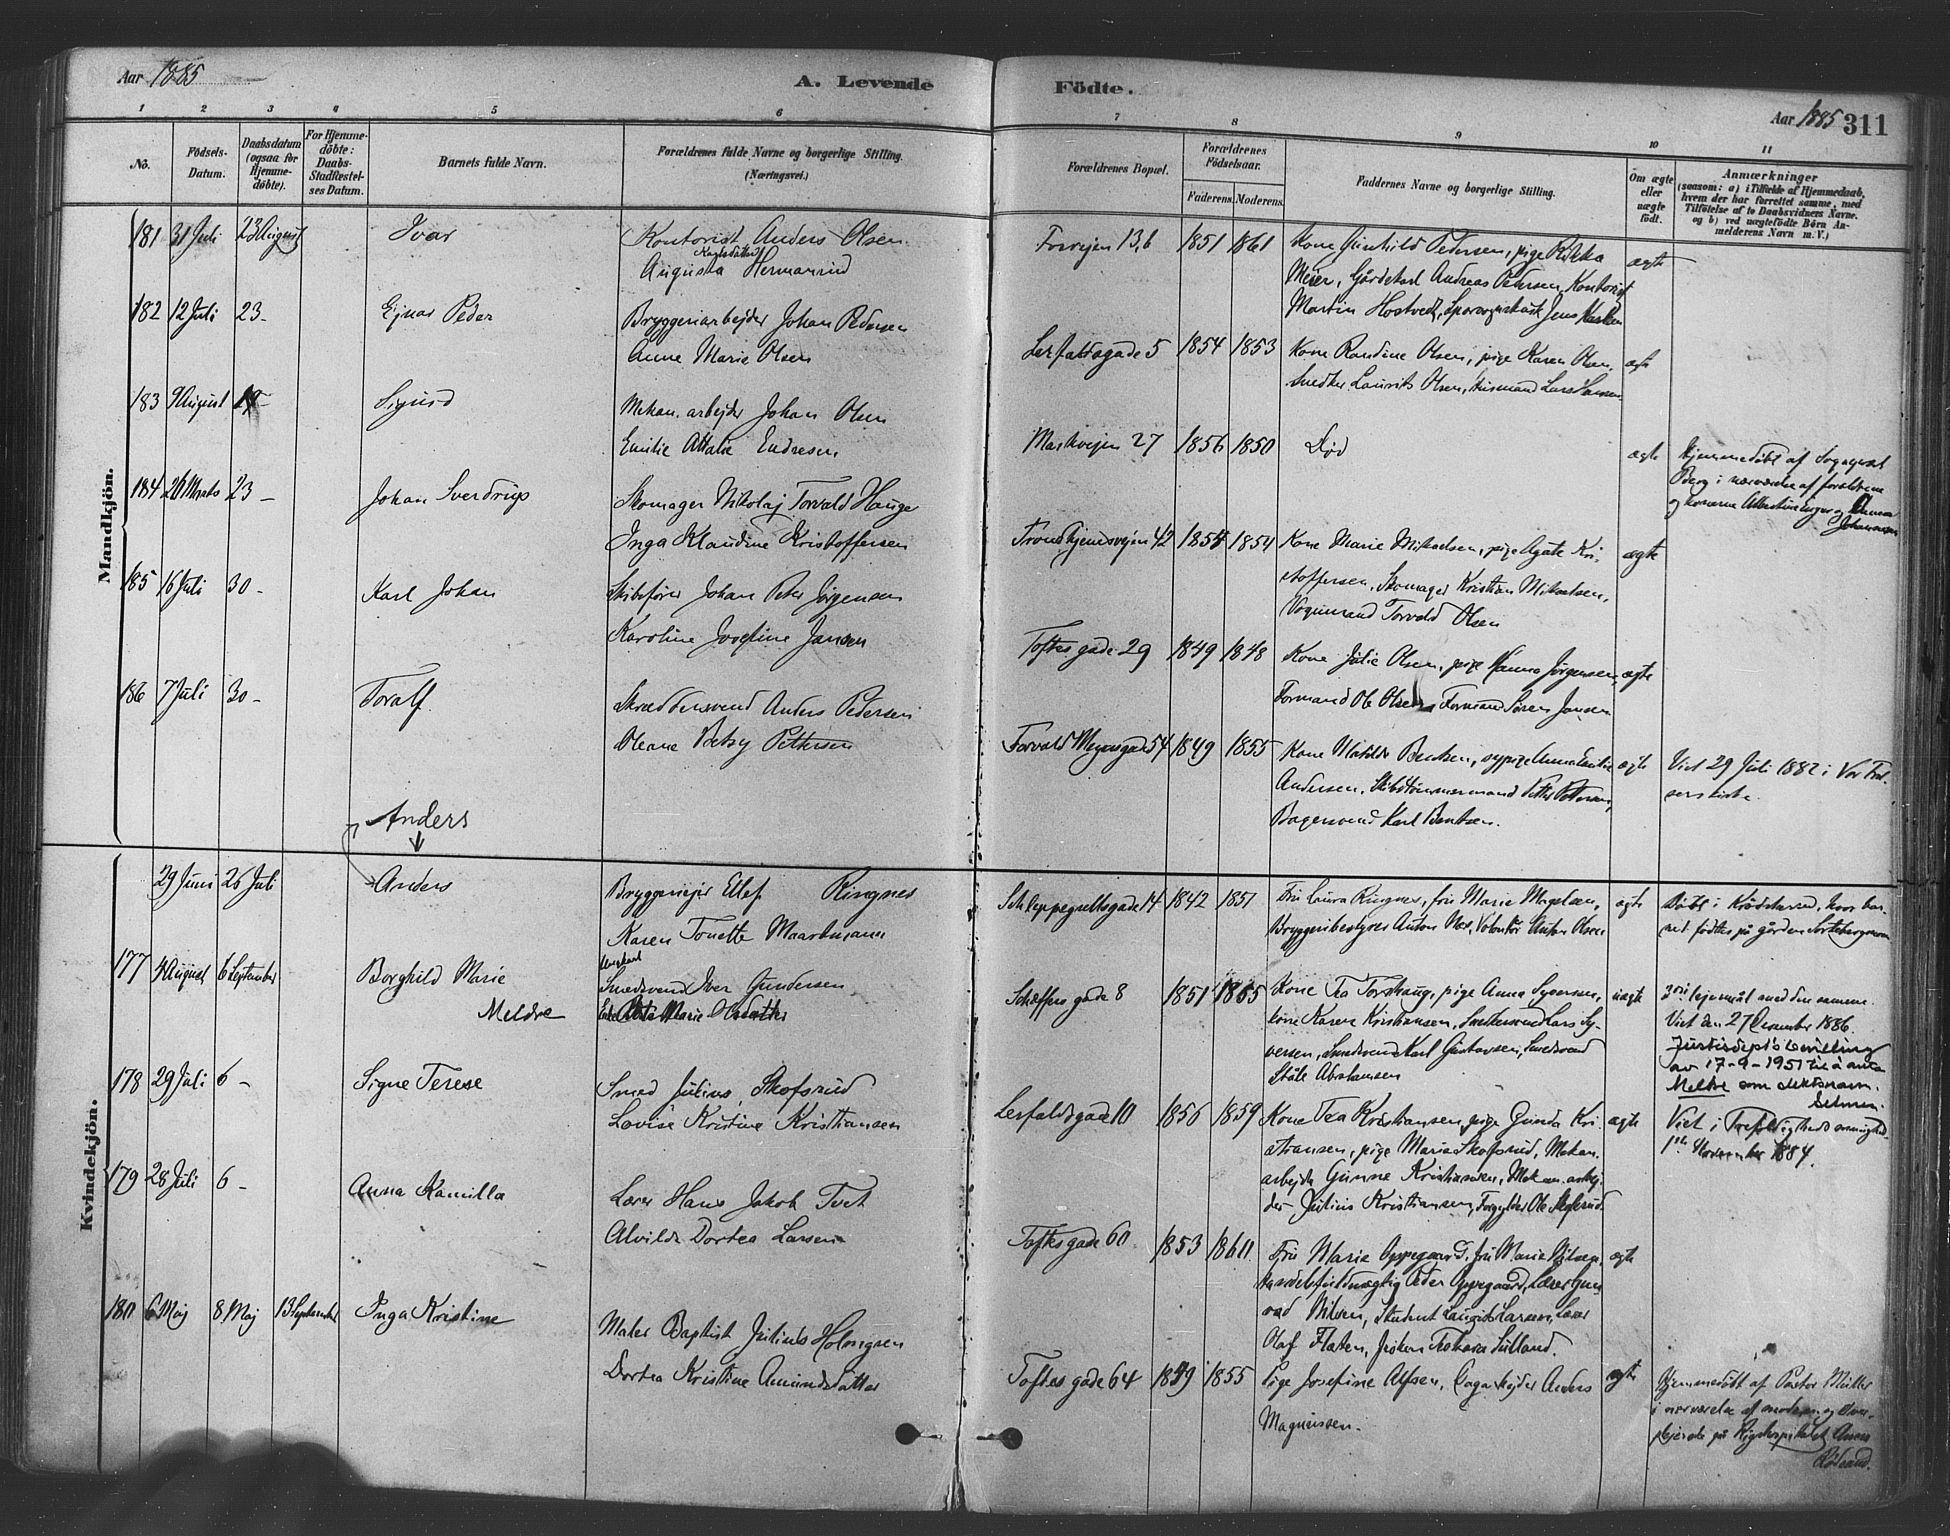 Aar 1885
A. Levende Födte.
Aar 1885 311
1 2 3 4 5 6 7 8 9 10 11
No.
Födsels-
Datum.
Daabsdatum
(ogsaa for
Hjemme-
döbte).
For Hjemme-
döbte:
Daabs-
Stadfæstel-
ses Datum.
Barnets fulde Navn.
Forældrenes fulde Navne og borgerlige Stilling.
(Næringsvei.)
Forældrenes Bopæl.
Forældrenes
Födselsaar.
Faderens. Moderens.
Faddernes Navne og borgerlige Stilling.
Om ægte
eller
uægte
födt.
Anmærkninger
(saasom: a) i Tilfælde af Hjemmedaab,
hvem der har forrettet samme, med
Tilföielse af to Daabsvidners Navne.
og b) ved uægtefödte Börn An-
melderens Navn m. V.)
Mandkjön.
181 31 Juli 23 August Ivar Kontorist Anders Olsen
Karlsdatter
Augusta Hermansrud
1851 1861 Kone Gunhild Pedersen, pige Rikka
Meier, Gårdskarl Andreas Petersen, Kontorist
Martin Hostvedt, Jens
ægte
182 12 Juli 23- Ejnar Peder Bryggeriarbejder Johan Pedersen
Anne Marie Olsen
Lesfaldsgade 5 1854 1853 Kone Randine Olsen, pige Karen Olsen,
Snedker Laurits Olsen, Husmand Lars Hansen
ægt
183 9 August 19- Sigurd Mekan. arbejder Johan Olsen
Emilie Attalie Endresen
Markvejen 27 1856 1850 Død ægte Hjemmedøbt af Sognepræst
Berg i nærværelse af forældrene
og konerne
Johannesen
184 26 Marts 23- Johan Sverdrup Skomager Nikolaj Torvald Hauge
Inga Klaudine Kristoffersen
Trondhjemsvejen 42 1854 Kone Marie Mikaelsen, pige Agate Kri-
stoffersen, Skomager Kristian Mikaelsen,
Vognmand Torvald Olsen
ægte
185 16 Juli 30- Karl Johan Skibsfører Johan Peter Jørgensen
Karoline Josefine Jansen
Toftes gade 29 1849 1848 Kone Julie Olsen, pige Hanna Jørgensen,
Formand Ole Olsen, Formand Søren Jansen
ægte
186 7 Juli 30- Toralf Skræddersvend Anders Pedersen
Oleane Betsy Pettersen
Torvald Meyersgade 54 1849 1855 Kone Matilde Bentsen, sypige Anna Emilie
Andersen, Skibstømmermand Petter Pettersen,
Bagersvend Karl Bentsen.
ægte Viet 29 Juli 1882 i Vor Frel-
sers kirke.
Anders
Kvindekjön.
29 Juni 26 Juli Anders Bryggeriejer Ellef Ringnes
Karen Tonette Maartmann
Schleppegrellsgade 14 1842 1851 Fru Laura Ringnes, fru Marie Magelsen,
Bryggeribestyrer Anton Næs, Volontør Anton Olsen
ægte Døbt i Krødsherred, hvor bar-
net fødtes på gården
177 4 August 6 September Borghild Marie
Meldre
Ungkarl
Smedsvend Iver Gundersen
Marie Olsdatter
Schæffers gade 8 1851 1855 Kone Tea Torshaug, pige Anna Syversen,
kone Karen Kristiansen, Snedkersvend Lars Sy-
versen, Smedsvend Karl Gustavsen, Smedsvend
Ståle Abrahamsen
uægte 3die lejermål med den samme.
Viet den 27 Desember 1886.
Justisdept's bevilling
av 17-9-1951 til å anta
Meldre som slektsnavn.
178 29 Juli 6- Signe Terese Smed Julius Skofsrud
Lovise Kristine Kristiansen
Lesfaldsgade 10 1856 1859 Kone Tea Kristiansen, pige Gunda Kri-
stiansen, pige Maria Skofsrud, Mekan.
arbejder Gunne Kristiansen, Mekan. arbej-
der Julius Kristiansen, Forgylder Ole Skofsrud.
ægte Viet i Trefoldigheds menighed
1ste November 1884.
179 28 Juli 6- Anna Kamilla Lærer Hans Jakob Tvet
Alvilde Dortea Larsen
Toftes gade 60 1853 1860 Fru Marie Oppegaard, fru Marie Nilsen,
handelsfuldmægtig Peder Oppegaard, Lærer
Nilsen, Student Laurits Larsen, Lærer
Olaf Flaten, frøken
ægte
180 6 Maj 8 Maj 13 September Inga Kristine Maler Baptist Julius Holmgren
Dortea Kristine Amundsdatter
Toftes gade 64 1859 1855 Pige Josefine Alfsen, Dagarbejder Anders
Magnussen.
ægte Hjemmedøbt af Pastor Müller
i nærværelse af moderen og Over-
plejerske på Rigshospitalet